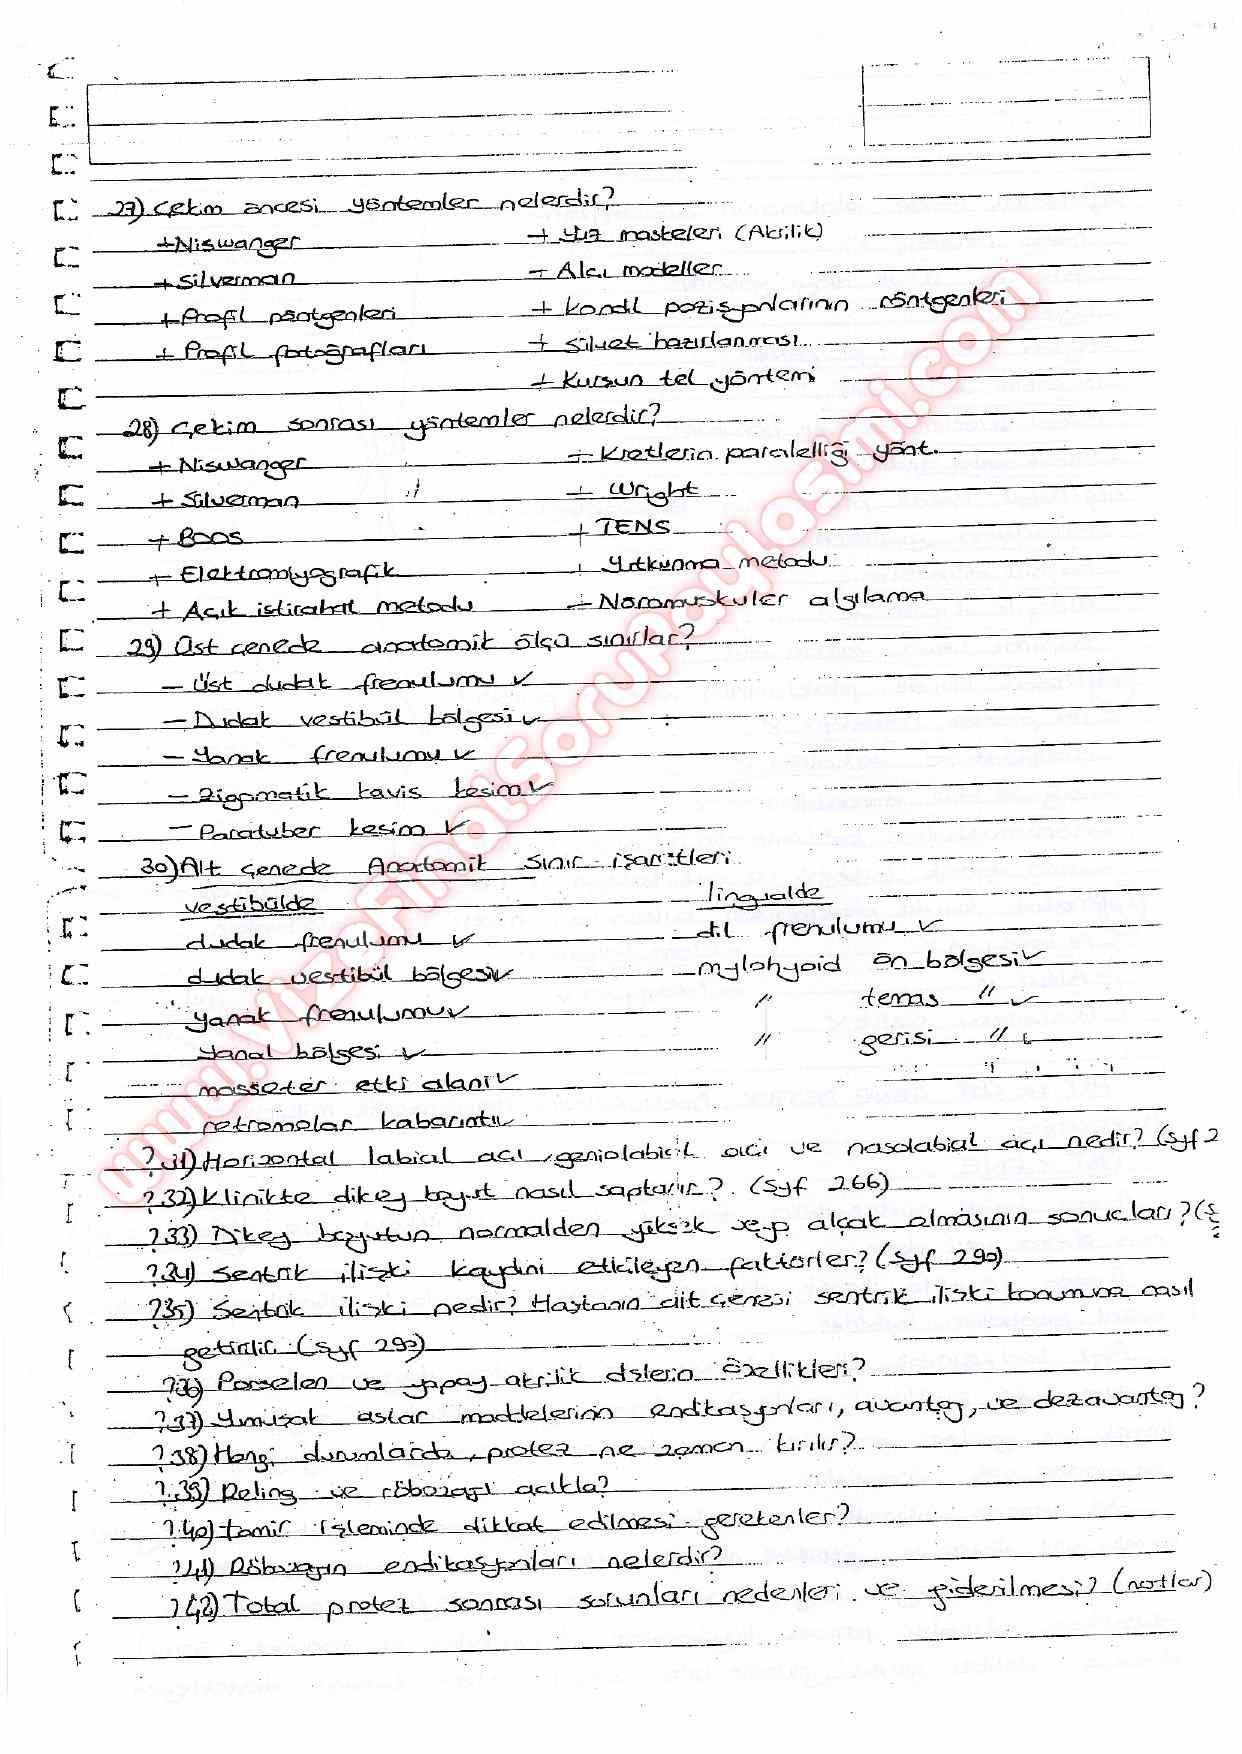 27) Çekim öncesi yöntemler nelerdir?
+ Niswanger + Yüz maskeleri (Akrilik)
+ Silverman + Alçı modeller
+ Profil röntgenleri + Kondil pozisyonlarının röntgenleri
+ Profil fotoğrafları + Silüet hazırlanması
+ Kurşun tel yöntemi
28) Çekim sonrası yöntemler nelerdir?
+ Niswanger + Kretlerin paralelliği yönt.
+ Silverman + Wright
+ Boos + TENS
+ Elektromyografik + Yutkunma metodu
+ Açık istirahat metodu + Nöromuskuler algılama
29) Üst çenede anatomik ölçü sınırlar?
- Üst dudak frenulumu ✓
- Dudak vestibül bölgesi ✓
- Yanak frenulumu ✓
- Zigomatik kavis kesim ✓
- Paratuber kesim ✓
30) Alt çenede Anatomik sınır işaretleri
vestibülde lingualde
dudak frenulumu ✓ dil frenulumu ✓
dudak vestibül bölgesi ✓ mylohyoid ön bölgesi ✓
yanak frenulumu ✓ " temas " ✓
Yanal bölgesi ✓ " gerisi " ✓
masseter etki alanı ✓
retromolar kabarıntı ✓
? 31) Horizontal labial açı, geniolabial açı ve nasolabial açı nedir? (syf 2
? 32) Klinikte dikey boyut nasıl saptanır? (syf 266)
? 33) Dikey boyutun normalden yüksek veya alçak olmasının sonuçları? (s
? 34) Sentrik ilişki kaydını etkileyen faktörler? (syf 290)
? 35) Sentrik ilişki nedir? Hastanın alt çenesi sentrik ilişki konumuna nasıl
getirilir (syf 290)
? 36) Porselen ve yapay akrilik dişlerin özellikleri?
? 37) Yumuşak astar maddelerinin endikasyonları, avantaj, ve dezavantaj?
? 38) Hangi durumlarda, protez ne zaman kırılır?
? 39) Reling ve röbazajı açıkla?
? 40) tamir işleminde dikkat edilmesi gerekenler?
? 41) Röbazajın endikasyonları nelerdir?
? 42) Total protez sonrası sorunları nedenleri ve giderilmesi? (notlar)
www.VizeFinalSoruPaylasimi.com